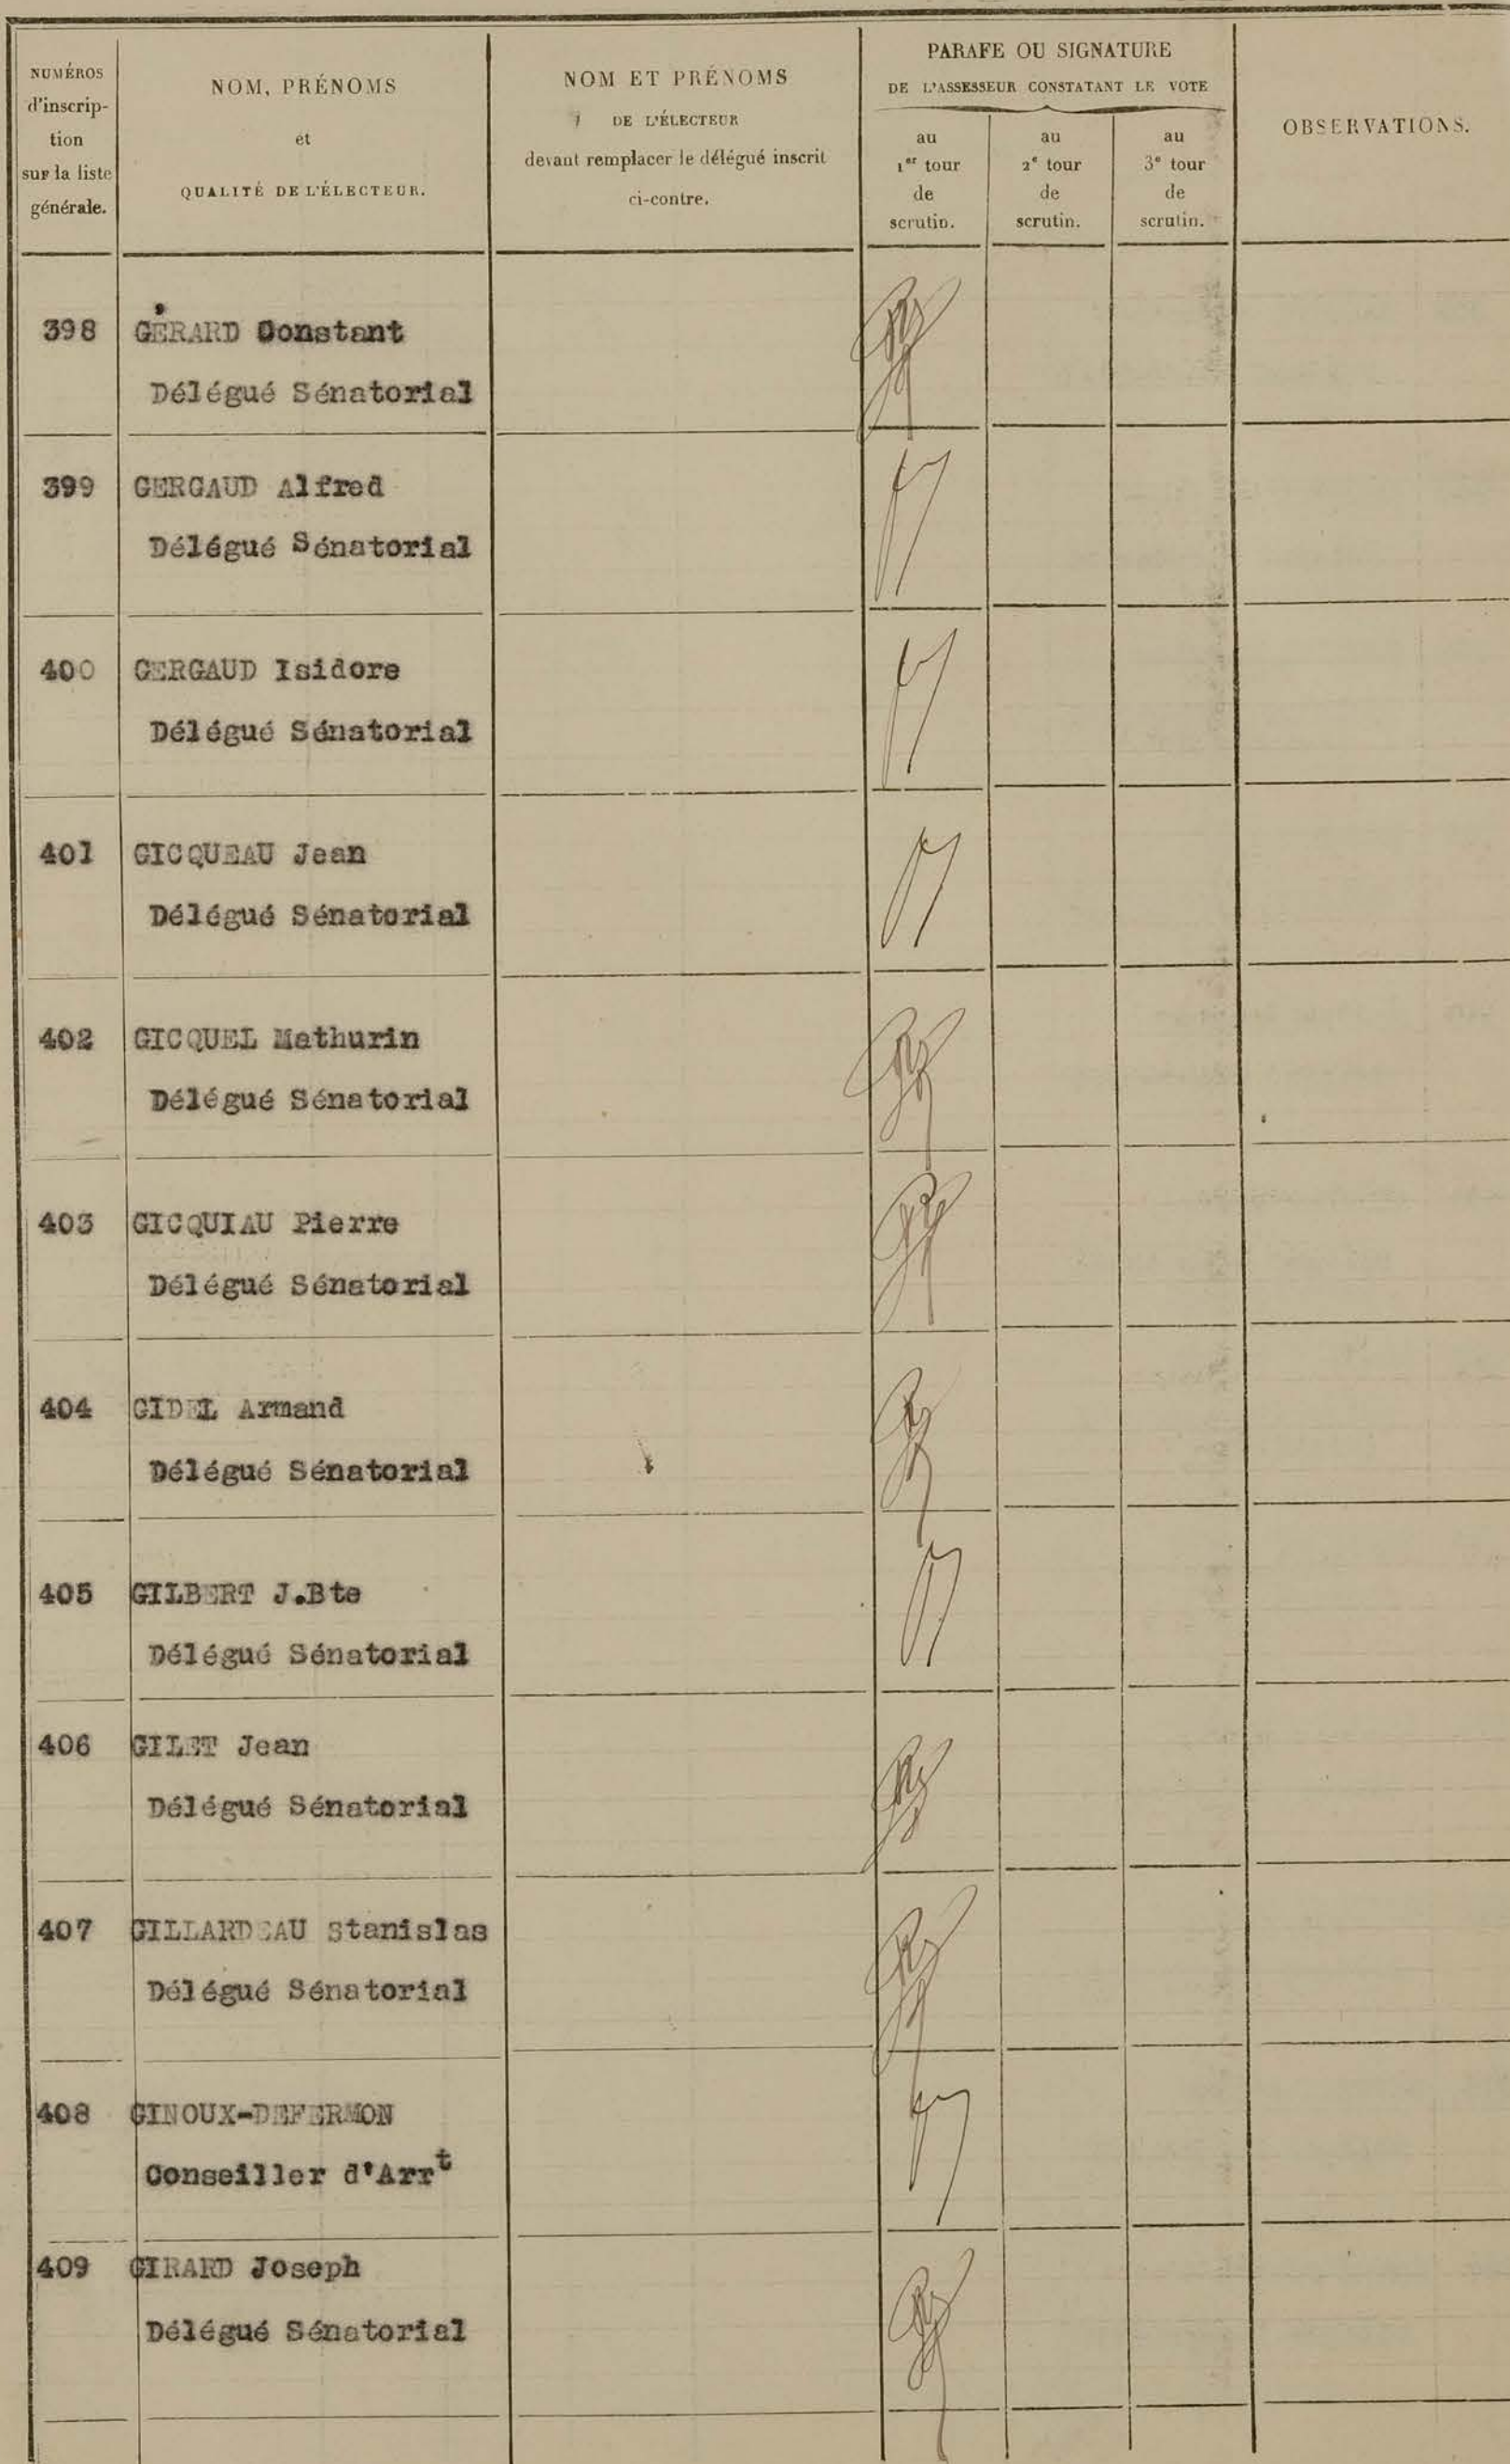 NUMÉROS
d'inscrip-
tion
sur la liste
générale.
NOM, PRÉNOMS
et
QUALITÉ DE L'ÉLECTEUR.
NOM ET PRÉNOMS
DE L'ÉLECTEUR
devant remplacer le délégué inscrit
ci-contre.
PARAFE OU SIGNATURE
DE L'ASSESSEUR CONSTATANT LE VOTE
au
1er tour
de
scrutin.
au
2e tour
de
scrutin.
au
3e tour
de
scrutin.
OBSERVATIONS.
398 GÉRARD Constant
Délégué Sénatorial
399 GERGAUD Alfred
Délégué Sénatorial
400 GERGAUD Isidore
Délégué Sénatorial
401 GICQUEAU Jean
Délégué Sénatorial
402 GICQUEL Mathurin
Délégué Sénatorial
403 GICQUIAU Pierre
Délégué Sénatorial
404 GIDEL Armand
Délégué Sénatorial
405 GILBERT J.Bte
Délégué Sénatorial
406 GILET Jean
Délégué Sénatorial
407 GILLARDEAU Stanislas
Délégué Sénatorial
408 GINOUX-DEFERMON
Conseiller d'Arrt
409 GIRARD Joseph
Délégué Sénatorial